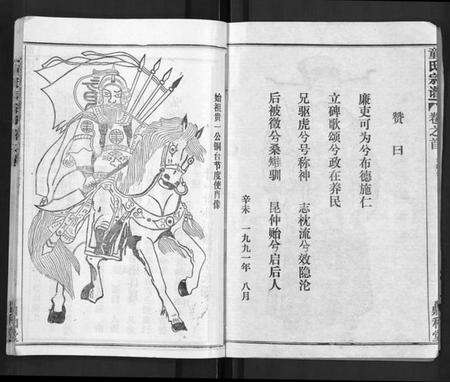 童氏宗谱 卷之首
赞曰
廉吏可为兮布德施仁
立碑歌颂兮政在养民
兄驱虎兮号称神 志枕流兮效隐沦
后被徵兮桑雉驯 昆仲贻兮启后人
辛未 一九九一年 八月
始祖贵一公铜台节度使肖像